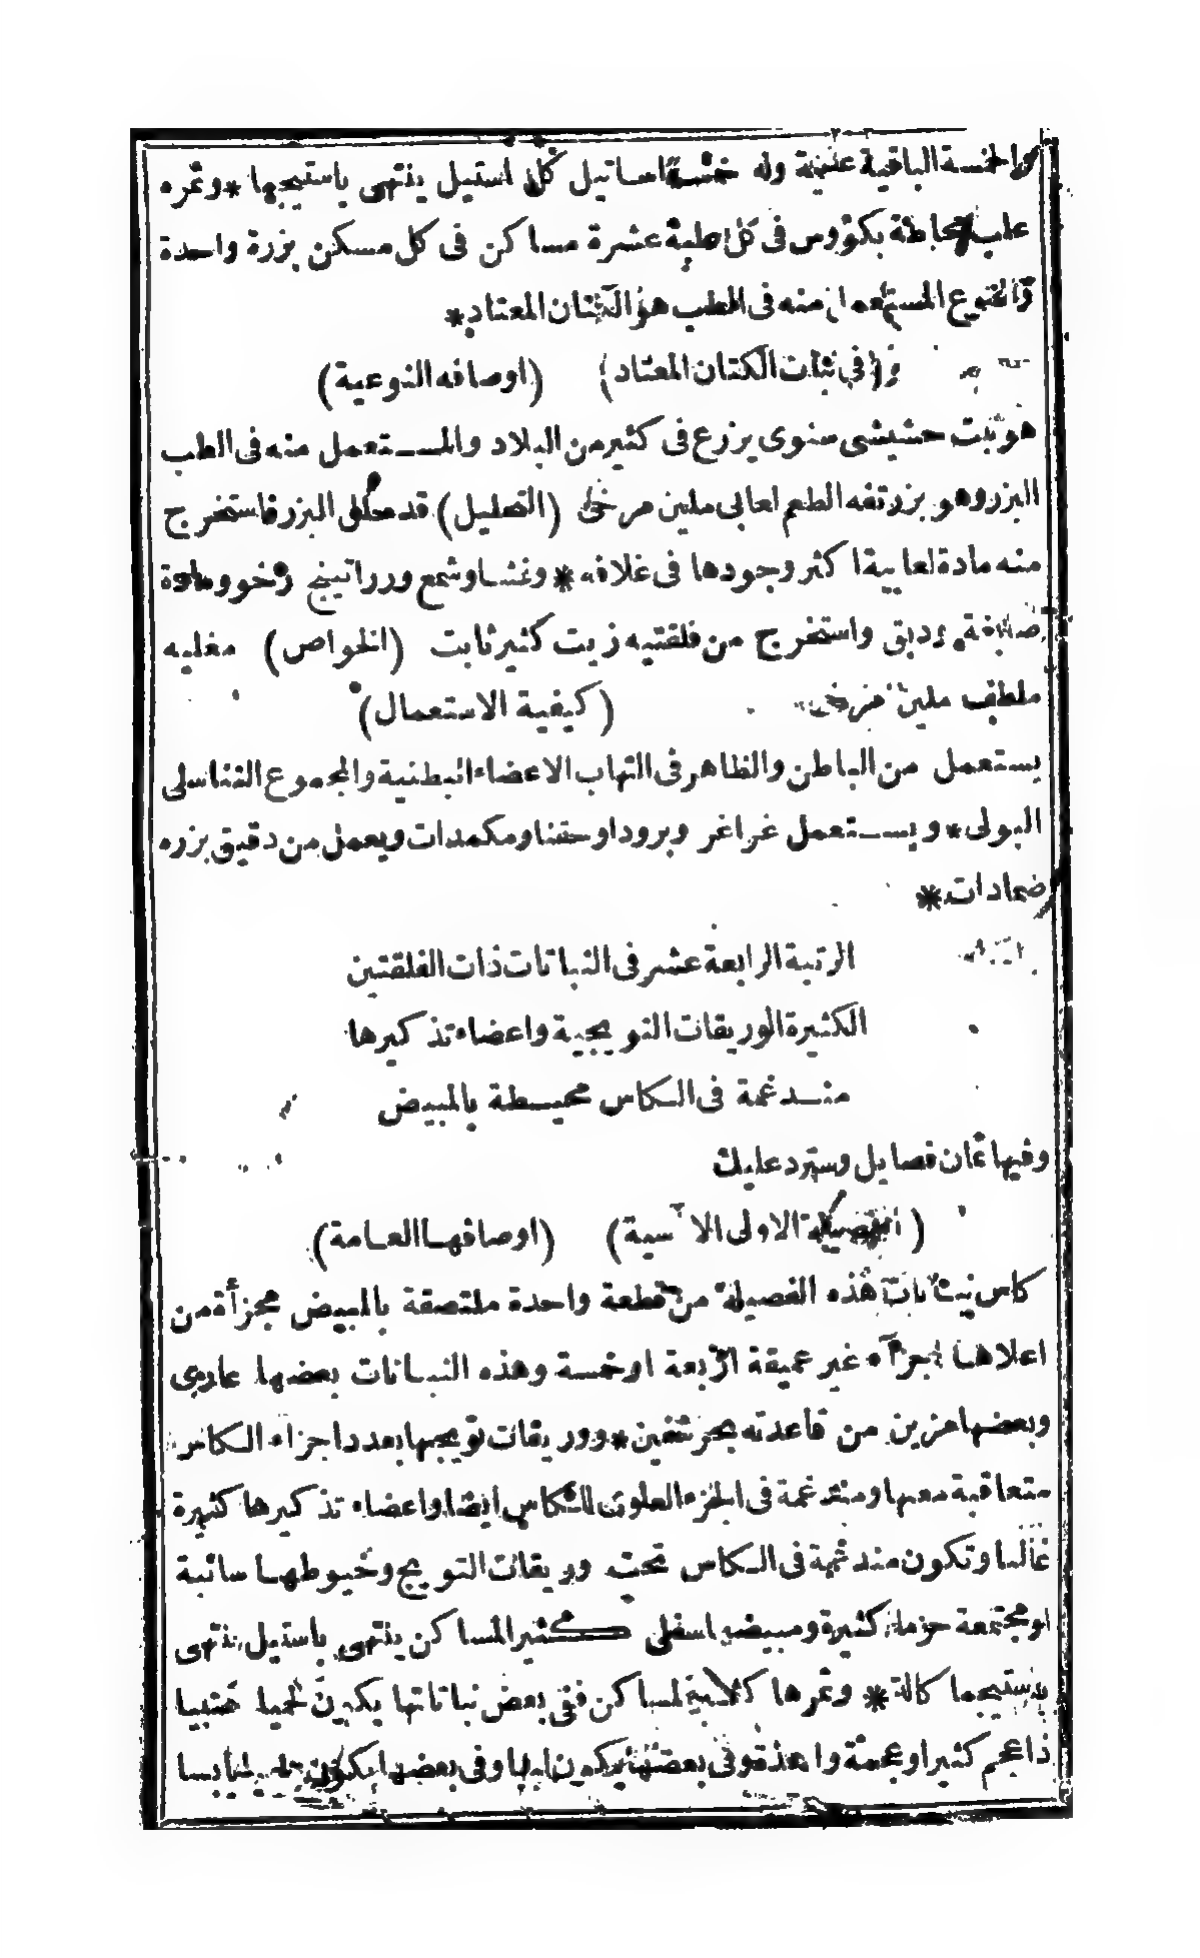 والخمسة الباقية عقيمة وله خمسة اساتيل كل استيل ينتهى باستيجها * وثمره
علب محاطة بكؤوس فى كل علبة عشرة مساكن فى كل مسكن بزرة واحدة
والنوع المستعمل منه فى الطب هو الكتان المعتاد *
(فى نبات الكتان المعتاد) (اوصافه النوعية)
هو نبت حشيشى سنوى يزرع فى كثير من البلاد والمستعمل منه فى الطب
البزر وهو بزر تفه الطعم لعابى ملين مرخى (التحليل) قد حلل البزر فاستخرج
منه مادة لعابية اكثر وجودها فى غلافه * ونشا وشمع وراتينج رخو ومادة
صابغة ودبق واستخرج من فلقتيه زيت كثير ثابت (الخواص) مغليه
ملطف ملين مرخى (كيفية الاستعمال)
يستعمل من الباطن والظاهر فى التهاب الاعضاء البطنية والمجموع التناسلى
البولى * ويستعمل غراغر وبرودا وحقنا ومكمدات ويعمل من دقيق بزره
ضمادات *
الرتبة الرابعة عشر فى النباتات ذات الفلقتين
الكثيرة الوريقات التويجية واعضاء تذكيرها
مندغمة فى الكاس محيطة بالمبيض
وفيها ثمان فصايل وسترد عليك
(الفصيلة الاولى الاسية) (اوصافها العامة)
كاس نباتات هذه الفصيلة من قطعة واحدة ملتصقة بالمبيض مجزأة من
اعلاها اجزآء غير عميقة اربعة اوخمسة وهذه النباتات بعضها عارى
وبعضها مزين من قاعدته بحرشفين * ووريقات تويجها بعدد اجزاء الكاس
متعاقبة معها ومندغمة فى الجزء العلوى للكاس ايضا واعضاء تذكيرها كثيرة
غالبا وتكون مندغمة فى الكاس تحت وريقات التويج وخيوطها سائبة
او مجتمعة حزما كثيرة ومبيضه اسفلى كثير المساكن ينتهى باستيل ينتهى
باستيجما كالة * وثمرها المساكن ففى بعض نباتاتها يكون لحميا عنبيا
ذا عجم كثير او عجمة واحدة وفى بعضها يكون لبيا وفى بعضها يكون يابسا